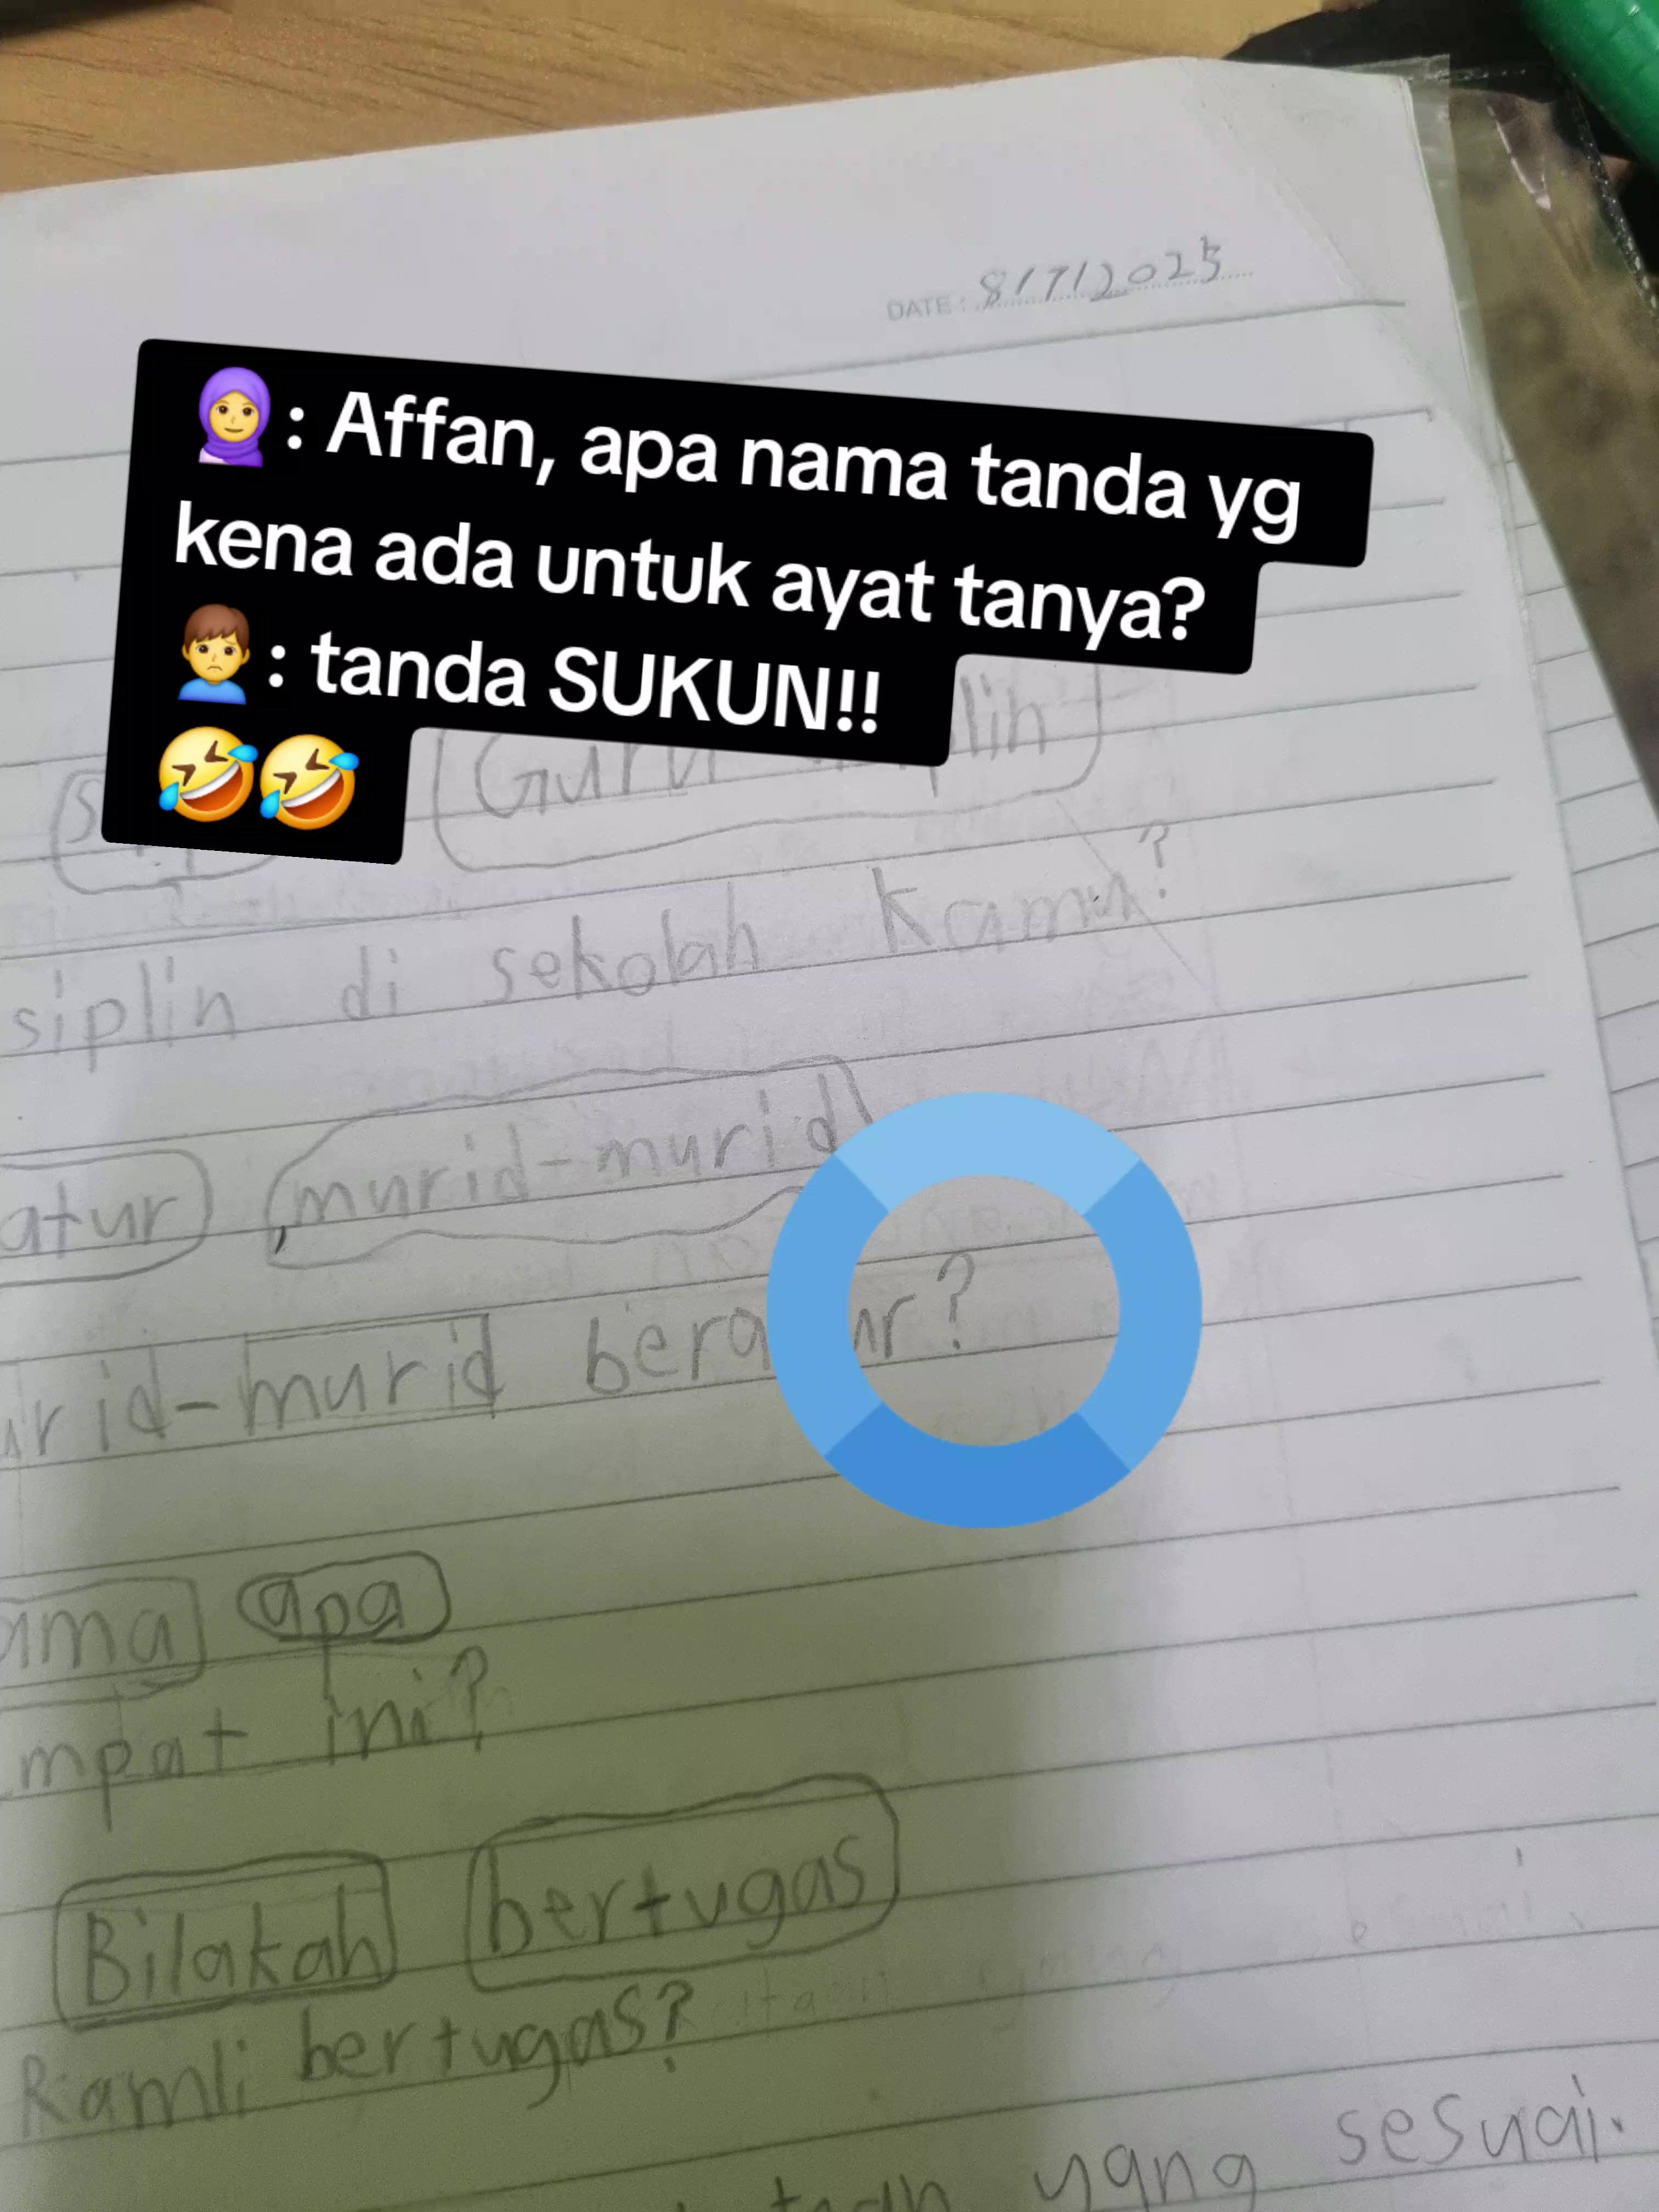 DATE: 8/7/2025
🧕: Affan, apa nama tanda yg
kena ada untuk ayat tanya?
🙍‍♂️: tanda SUKUN!!
🤣🤣
siplin di sekolah kamu?
atur murid-murid
urid-murid beratur?
ama apa
mpat ini?
Bilakah bertugas
Ramli bertugas?
yang sesuai.